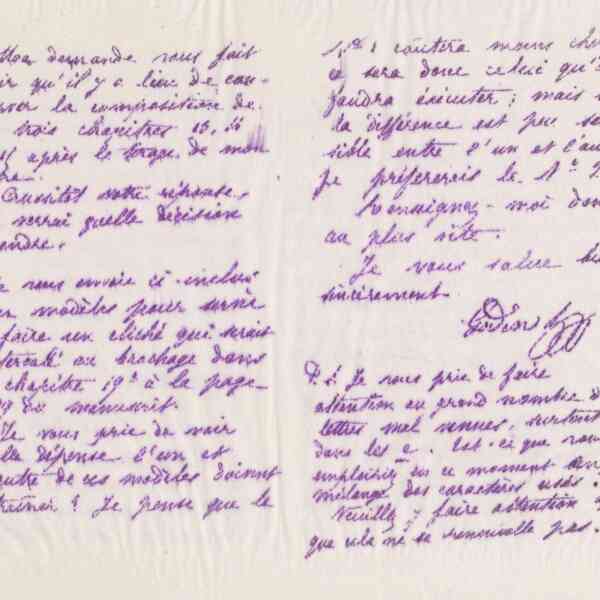 demande vous fait
qu'il y a lieu de con-
la composition de
trois chapitres 13, 14
après le tirage de mon
Aussitôt votre réponse,
verrai quelle décision
vous envoie ci-inclus
modèles pour
faire un cliché qui serait
au brochage dans
chapitre 19e à la page
du manuscrit.
Je vous prie de voir
dépense l'un et
de ces modèles doivent
? Je pense que le
coûtera moins
ce sera donc celui qu'
faudra exécuter ; mais
la différence est peu sen-
sible entre l'un et l'au
je préfèrerais le No 2
Renseignez-moi don
au plus vite.
Je vous salue
sincèrement
Godin
P.S. Je vous prie de faire
attention au grand nombre d
lettres mal venues, surtout
dans les e. Est-ce que vous
employez en ce moment un
mélange des caractères usés.
Veuillez y faire attention
que cela ne se renouvelle pas.